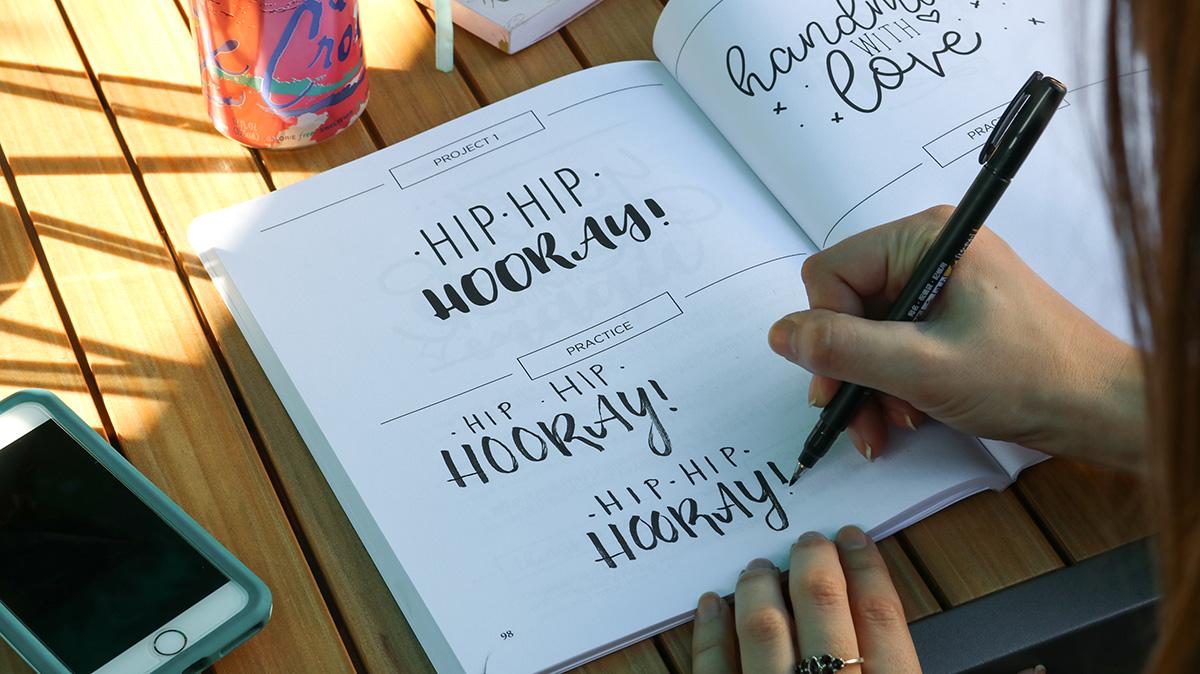 La Croix
PROJECT 1
·HIP·HIP·
HOORAY!
PRACTICE
·HIP·HIP·
HOORAY!
·HIP·HIP·
HOORAY!
98
WITH
love